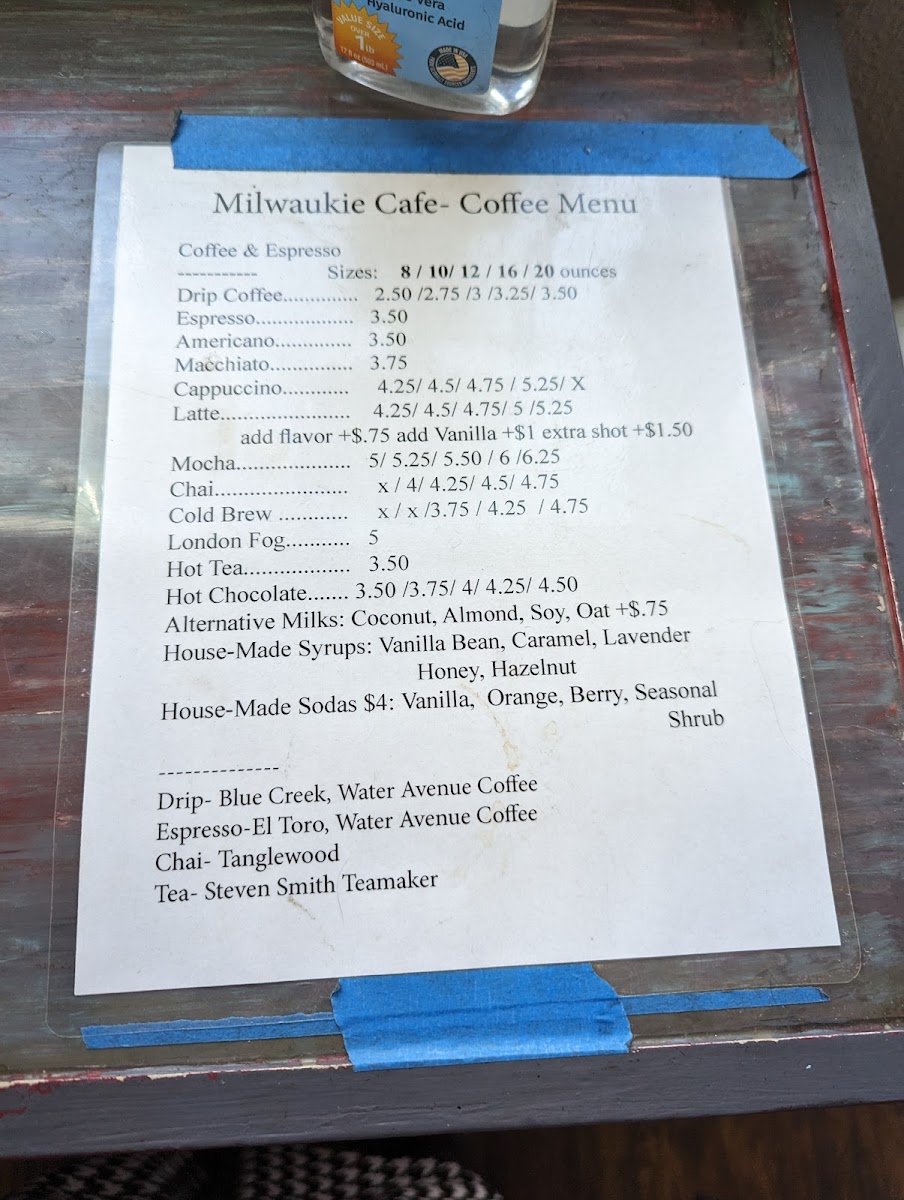 Vera
Hyaluronic Acid
VALUE SIZE
OVER
1lb
17 fl oz (503 mL)
MADE IN USA
Milwaukie Cafe- Coffee Menu
Coffee & Espresso
----------- Sizes: 8 / 10/ 12 / 16 / 20 ounces
Drip Coffee.............. 2.50 /2.75 /3 /3.25/ 3.50
Espresso................... 3.50
Americano............... 3.50
Macchiato................ 3.75
Cappuccino............. 4.25/ 4.5/ 4.75 / 5.25/ X
Latte......................... 4.25/ 4.5/ 4.75/ 5 /5.25
add flavor +$.75 add Vanilla +$1 extra shot +$1.50
Mocha...................... 5/ 5.25/ 5.50 / 6 /6.25
Chai......................... x / 4/ 4.25/ 4.5/ 4.75
Cold Brew ............. x / x /3.75 / 4.25 / 4.75
London Fog............ 5
Hot Tea.................... 3.50
Hot Chocolate....... 3.50 /3.75/ 4/ 4.25/ 4.50
Alternative Milks: Coconut, Almond, Soy, Oat +$.75
House-Made Syrups: Vanilla Bean, Caramel, Lavender
Honey, Hazelnut
House-Made Sodas $4: Vanilla, Orange, Berry, Seasonal
Shrub
--------------
Drip- Blue Creek, Water Avenue Coffee
Espresso-El Toro, Water Avenue Coffee
Chai- Tanglewood
Tea- Steven Smith Teamaker